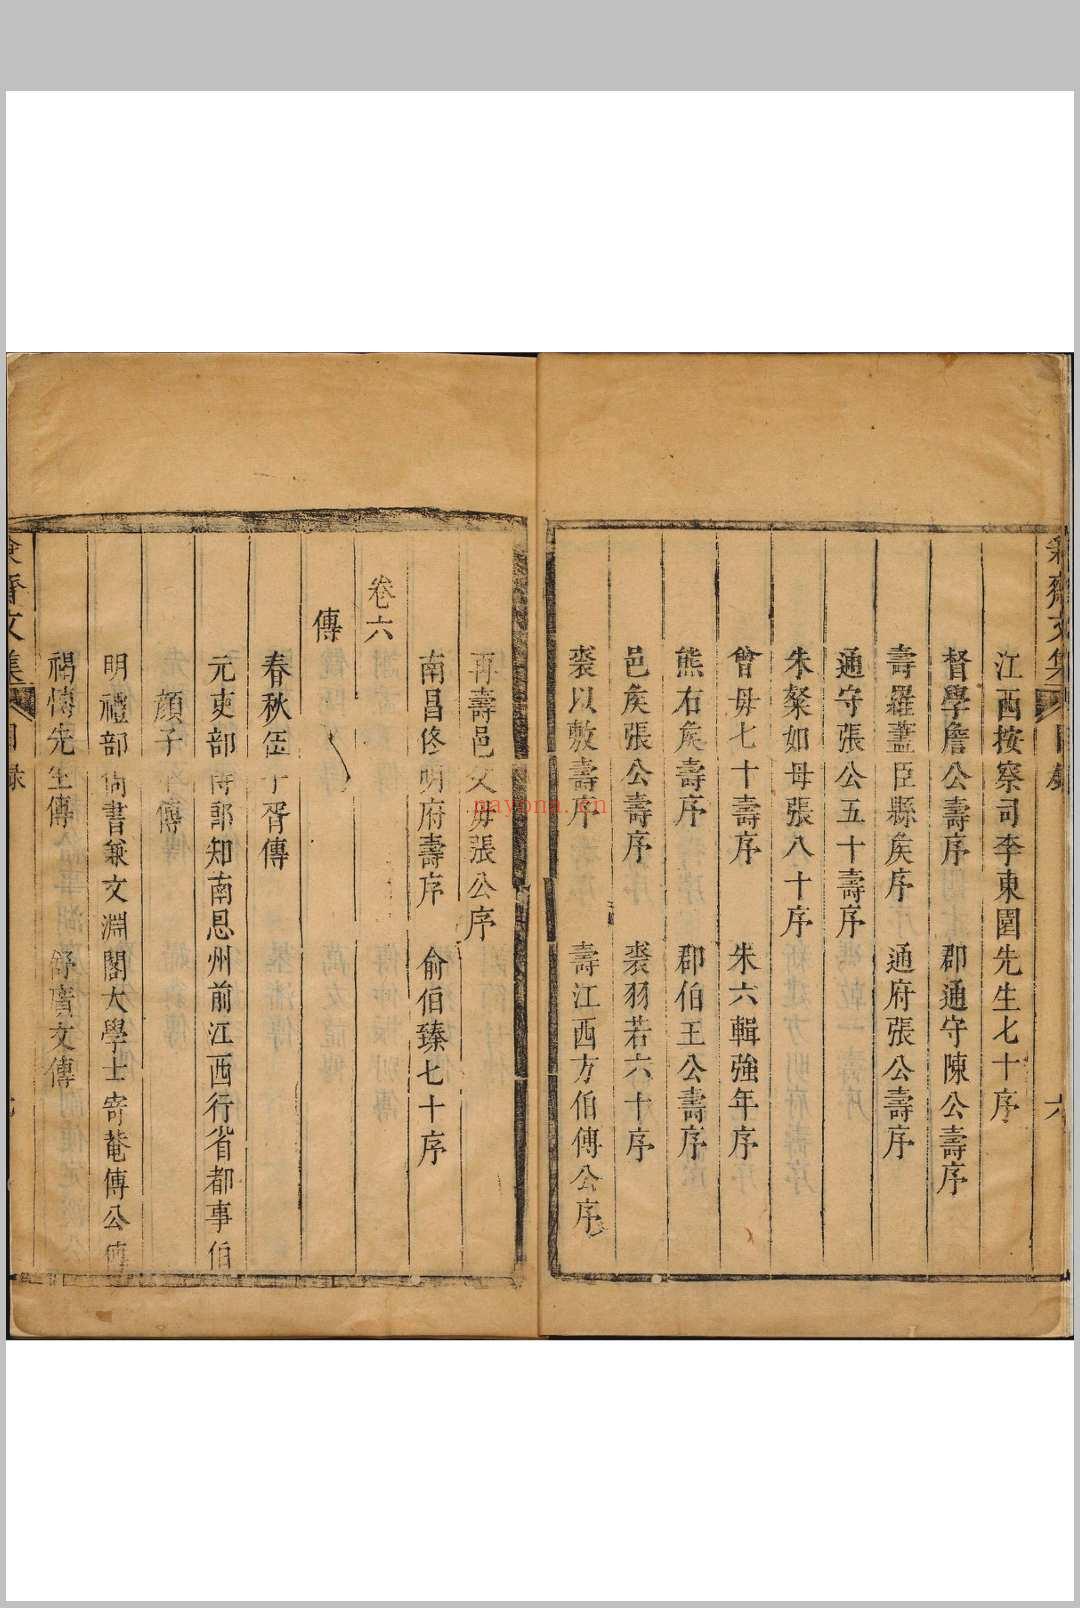 江西按察司李東園先生七十序
督學詹公壽序 郡通守陳公壽序
壽羅藎臣縣矦序 通府張公壽序
通守張公五十壽序
朱粲如母張八十序
曾毋七十壽序 朱六輯強年序
熊右矦壽序 郡伯王公壽序
邑矦張公壽序 裘羽若六十序
裘以敷壽序 壽江西方伯傅公序
再壽邑父毋張公序
南昌佟明府壽序 俞伯臻七十序
卷六
傳
春秋伍子胥傳
元吏部侍郎知南恩州前江西行省都事伯
顔子中傳
明禮部尚書兼文淵閣大學士寄菴傅公傳
先生傳 舒廣文傳
齋文集
目錄
六
nayona.cn